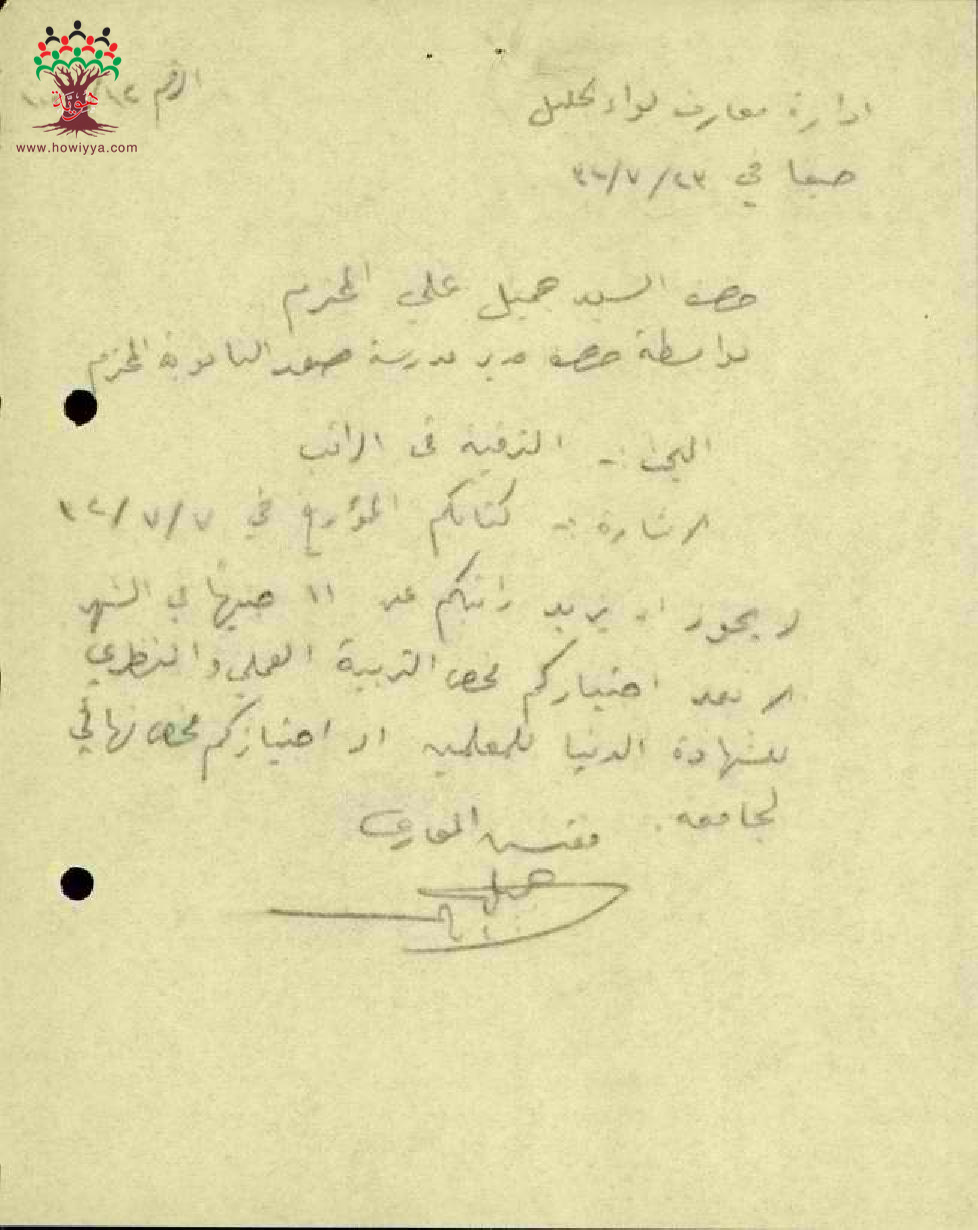 هوية
www.howiyya.com
الرقم
ادارة معارف لواء الجليل
في ٢٣/٧/
حضرة السيد جميل علي المحترم
بواسطة حضرة مدير مدرسة صفد الثانوية المحترم
البحث :- الترقية في الراتب
الاشارة :- كتابكم المؤرخ في ٧/٧/
لا يجوز ان يزيد راتبكم عن ١١ جنيها في الشهر
الا بعد اجتيازكم فحص التربية العملي والنظري
للشهادة الدنيا للمعلمين او اجتيازكم فحص نهائي
لجامعة.
مفتش المعارف
جميل